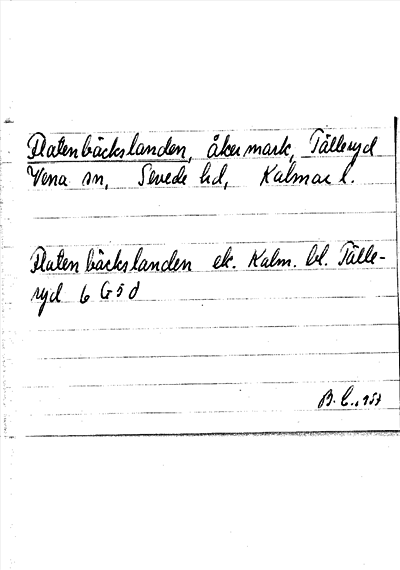 Platenbäckslanden, åkermark, Tälleryd
Vena sn, Sevede hd, Kalmar l.
Platenbäckslanden ek. Kalm. bl. Tälle-
ryd 6 G 5 d
B. C.,